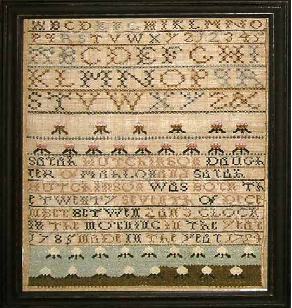 ABCDEFGHIKLMNO
PQRSTVWXYZ12345
ABCDEFGHI
KLMNOPQR
STVWXYZ&
SARAH HUTCHINSON DAUGH
TER OF MAHLON AND SARAH
HUTCHINSON WAS BORN TH
E TWENTY SEVENTH OF DECE
MBER BETWEN 2 AN 3 CLOCK
IN THE MORNING IN THE YEAR
1785 MADE IN THE YEAR